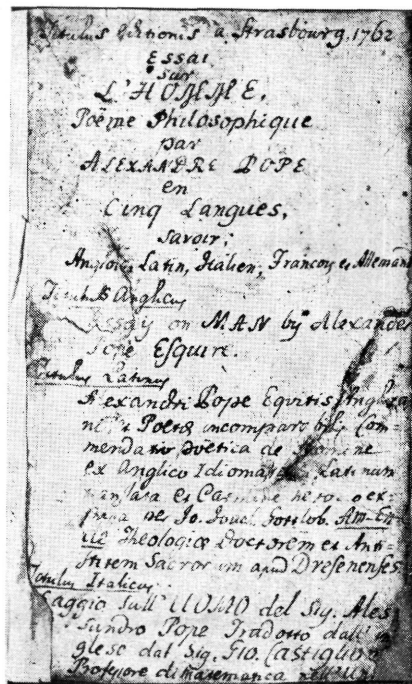 Titulus Editionis a Strasbourg. 1762
Essai
sur
L'HOMME,
Poëme Philosophique
par
ALEXANDRE POPE
en
Cinq Langues,
savoir;
Anglois, Latin, Italien, François et Allemand
Titulus Anglicus
Essay on MAN by Alexander
Pope Esquire.
Titulus Latinus
Alexandri Pope Equitis
Poetæ incomparabilis Com=
mendatio poetica de Homine
ex Anglico Idiomate Latinum
translata et Carmine heroico ex=
per Jo. Gottlob. Am-En
Theologiæ Doctorem et Anti=
stitem Sacrorum apud Dresdenses
Titulus Italicus
Saggio sull' UOMO del Sig. Ales
sandro Pope Tradotto dall' in
glese dal Sig. Gio. Castiglioni
Professore di matematica nell'